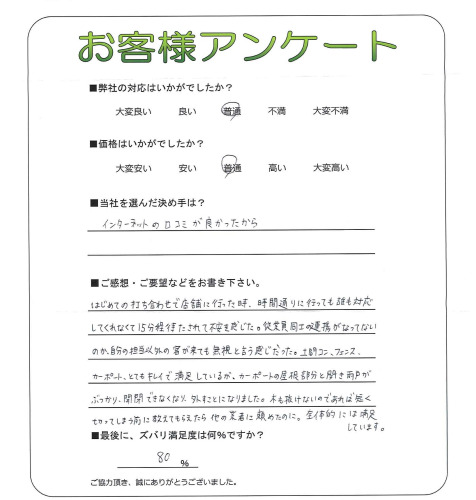 お客様アンケート
■弊社の対応はいかがでしたか？
大変良い 良い 普通 不満 大変不満
■価格はいかがでしたか？
大変安い 安い 普通 高い 大変高い
■当社を選んだ決め手は？
インターネットの口コミが良かったから
■ご感想・ご要望などをお書き下さい。
はじめての打ち合わせで店舗に行った時、時間通りに行っても誰も対応
してくれなくて15分程待たされて不安を感じた。従業員同士の連携がなってない
のか、自分の担当以外の客が来ても無視と言う感じだった。土間コン、フェンス、
カーポート、とてもキレイで満足しているが、カーポートの屋根部分と開き雨戸が
ぶつかり、開閉できなくなり、外すことになりました。木も抜けないのであれば短く
切ってしまう前に教えてもらえたら他の業者に頼めたのに。全体的には満足
しています。
■最後に、ズバリ満足度は何％ですか？
80 ％
ご協力頂き、誠にありがとうございました。